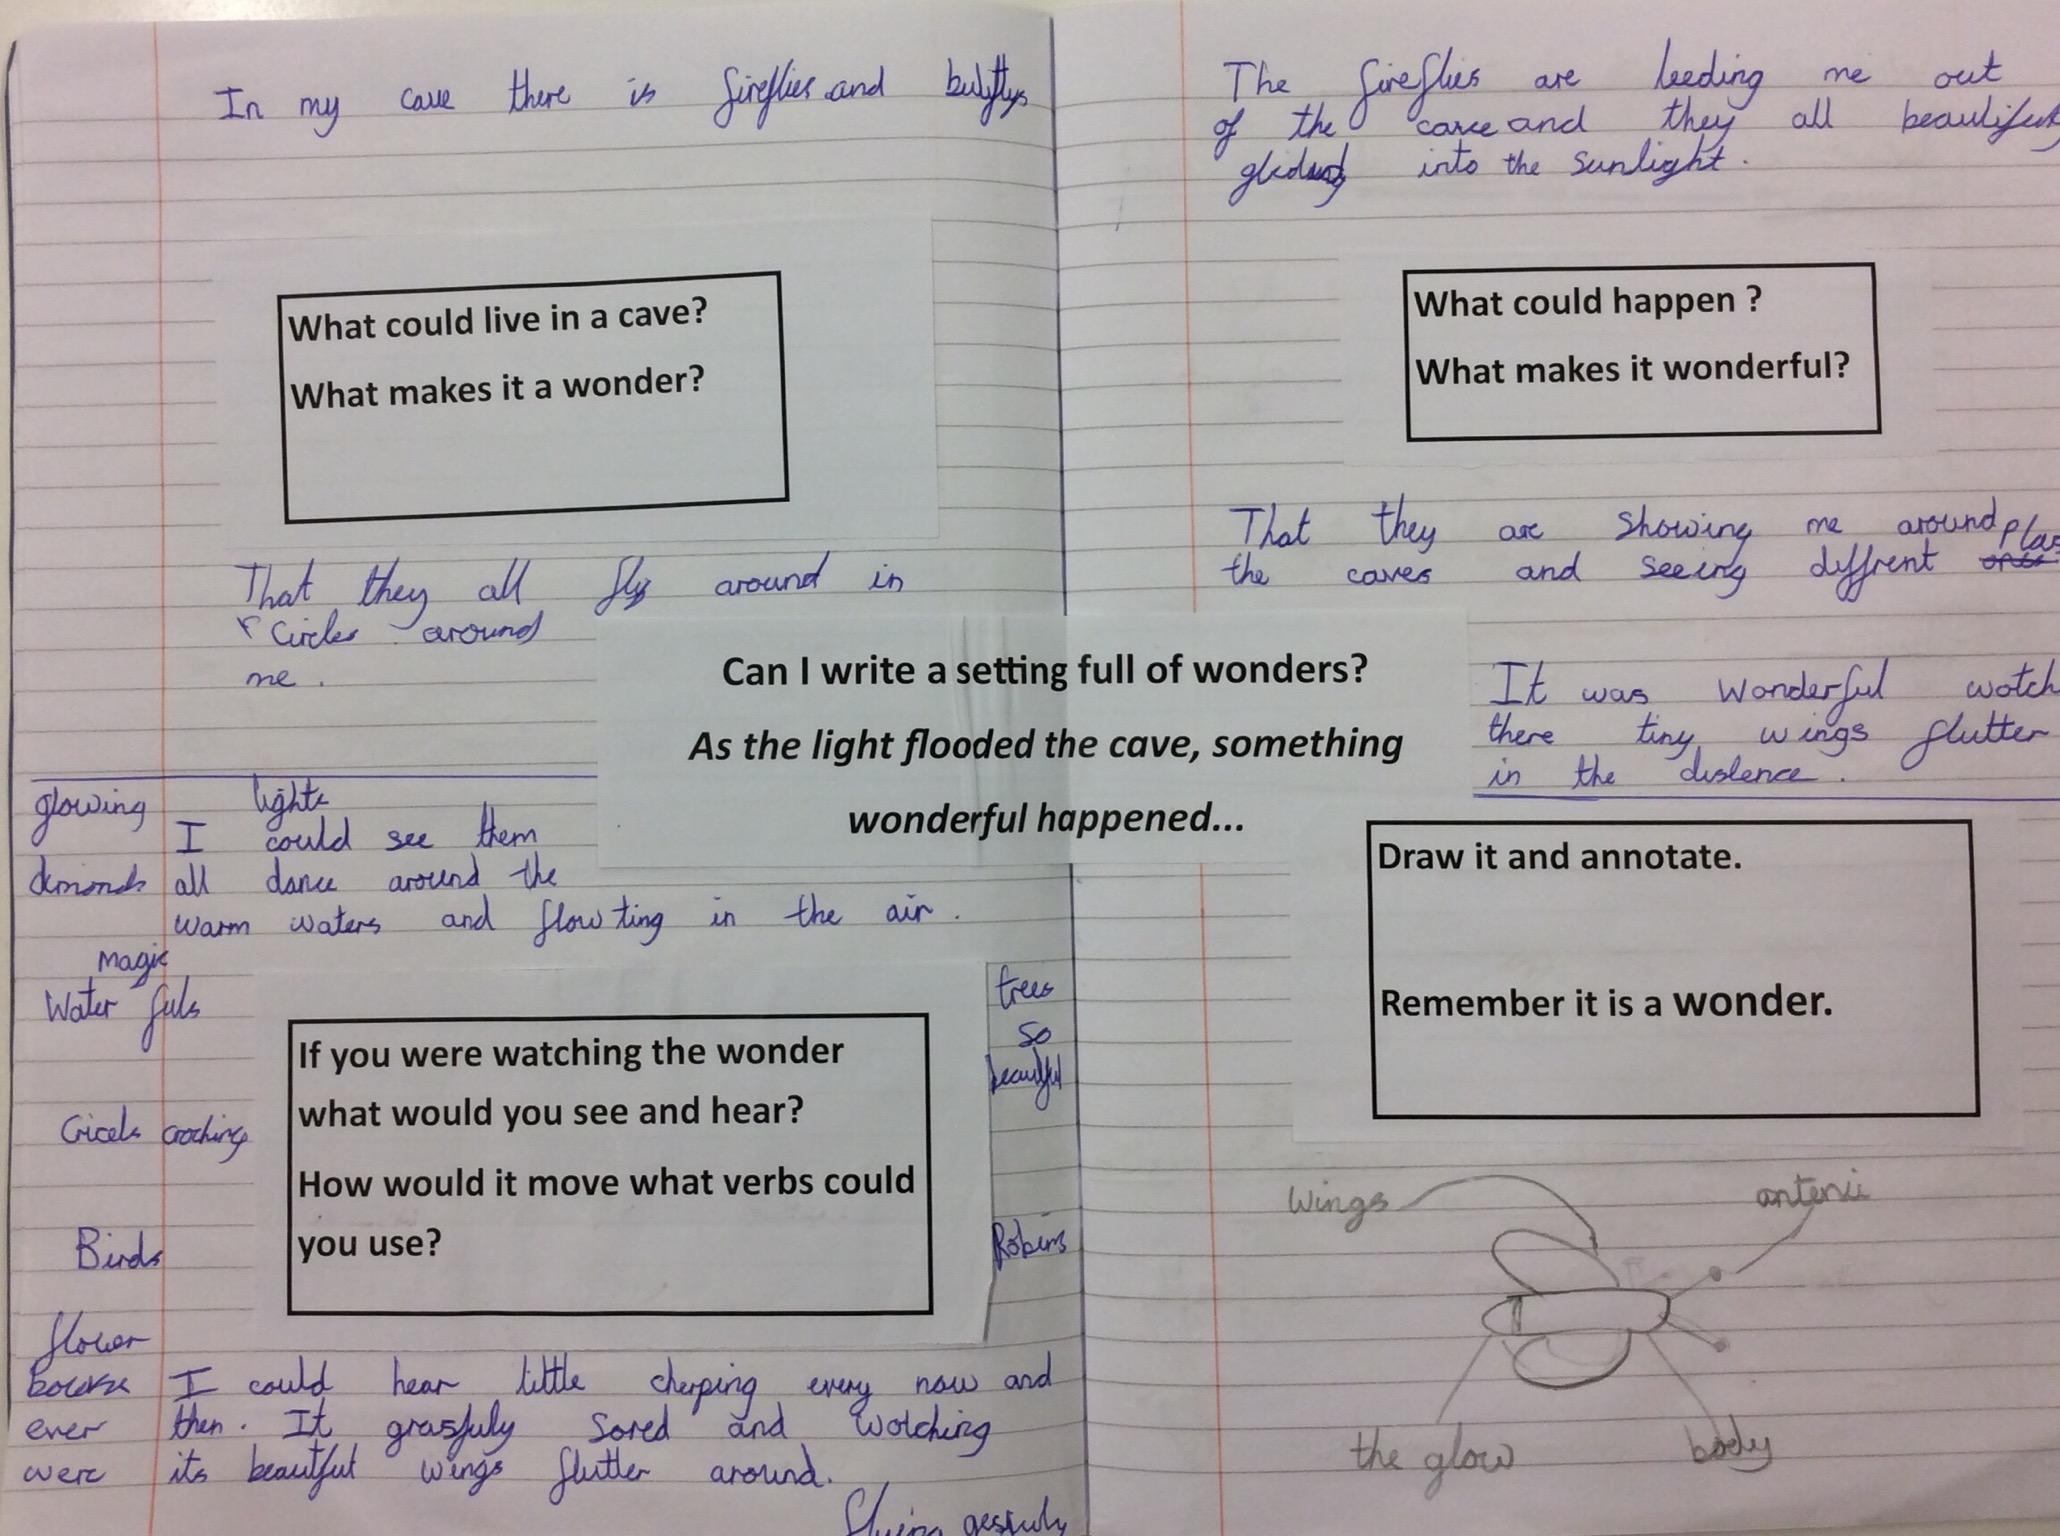 In my cave there is fireflies and
What could live in a cave?
What makes it a wonder?
That they all fly around in
circles around
me.
glowing lights
I could see them
dimonds all dance around the
warm waters and flowting in the air.
magic
Water fuls
trees
so
If you were watching the wonder
what would you see and hear?
How would it move what verbs could
you use?
Birds
Robins
flower
I could hear little cherping every now and
ever then. It grasfuly sored and wotching
were its beautful wings flutter around.
flying
Can I write a setting full of wonders?
As the light flooded the cave, something
wonderful happened...
The fireflies are leeding me out
of the cave and they all
into the sunlight.
What could happen ?
What makes it wonderful?
That they are showing me around
the caves and seeing diffrent
It was wonderful wotch
there tiny wings flutter
in the distence.
Draw it and annotate.
Remember it is a wonder.
wings
antenii
the glow
body